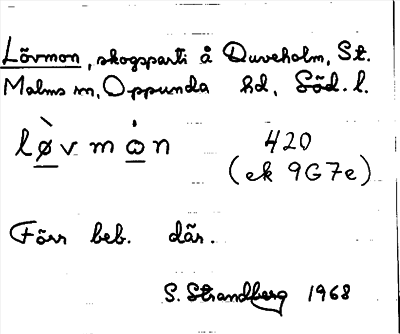 Lövmon, skogsparti å Duveholm, St.
Malms sn, Oppunda hd, Söd. l.
lø̀vmȯn 420
(ek 9G7e)
Förr beb. där.
S. Strandberg 1968